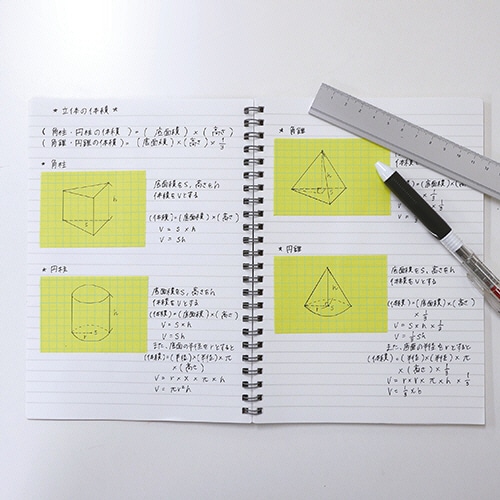 ★ 立体の体積 ★
( 角柱・円柱の体積 ) = ( 底面積 ) × ( 高さ )
( 角錐・円錐の体積 ) = ( 底面積 ) × ( 高さ ) × 1/3
★ 角柱
h
S
底面積をS, 高さをh
体積をVとする
(体積) = (底面積) × (高さ)
V = S × h
V = Sh
★ 円柱
h
r
S
底面積をS, 高さをh
体積をVとする
(体積) = (底面積) × (高さ)
V = S × h
V = Sh
また, 底面の半径をrとすると
(体積) = (半径) × (半径) × π
× (高さ)
V = r × r × π × h
V = πr²h
★ 角錐
h
S
× 1/3
★ 円錐
h
r
S
底面積をS, 高さをh
体積をVとする
(体積) = (底面積) × (高さ)
× 1/3
V = S × h × 1/3
V = 1/3 Sh
また, 底面の半径をrとすると
(体積) = (半径) × (半径) × π
× (高さ) × 1/3
V = r × r × π × h × 1/3